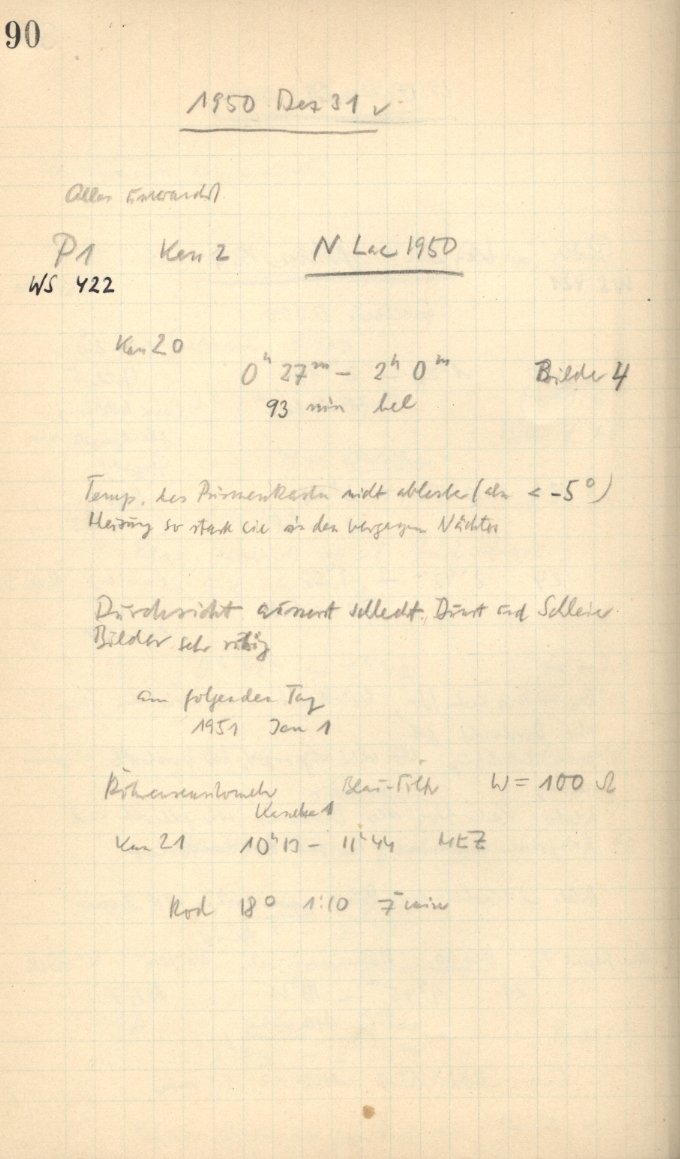 90
1950 Dez 31
Alles
P1 Kass 2 N Lac 1950
WS 422
Kass 20
0ʰ 27ᵐ – 2ʰ 0ᵐ Bilder 4
93 min bel
Temp. des Prismenkastens nicht ablesbar (also < -5°)
Heizung so stark wie in den vergangenen Nächten
Durchsicht äusserst schlecht. Dunst und Schleier.
Bilder sehr ruhig
am folgenden Tag
1951 Jan 1
Röhrensensitometer Blau-Filter W = 100 Ω
Kassette 1
Kass 21 10ʰ13 – 11ʰ44 MEZ
Rod 18° 1:10 7 min